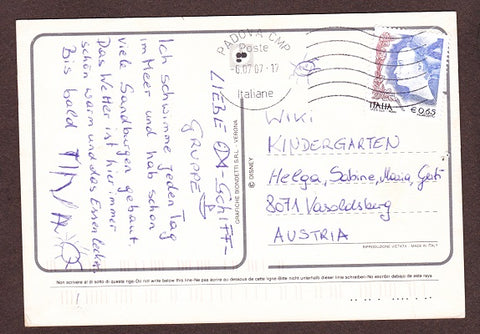 LIEBE
GRUPPE
Ich schwimme jeden Tag
im Meer und hab schon
viele Sandburgen gebaut.
Das Wetter ist hier immer
schön warm und das Essen lecker.
Bis bald TINA
GRAFICHE BIONDETTI S.R.L. - VERONA
© DISNEY
PADOVA CMP
Poste
-6.07.07-17
Italiane
ITALIA
€ 0,65
WIKI
KINDERGARTEN
Helga, Sabine, Maria, Gabi
8071 Vasoldsberg
AUSTRIA
RIPRODUZIONE VIETATA - MADE IN ITALY
Non scrivere al di sotto di questa riga-Do not write below this line-Ne pas écrire au dessous de cette ligne-Bitte nicht unterhalb dieser Linie schreiben-No escribir debajo de esta raya